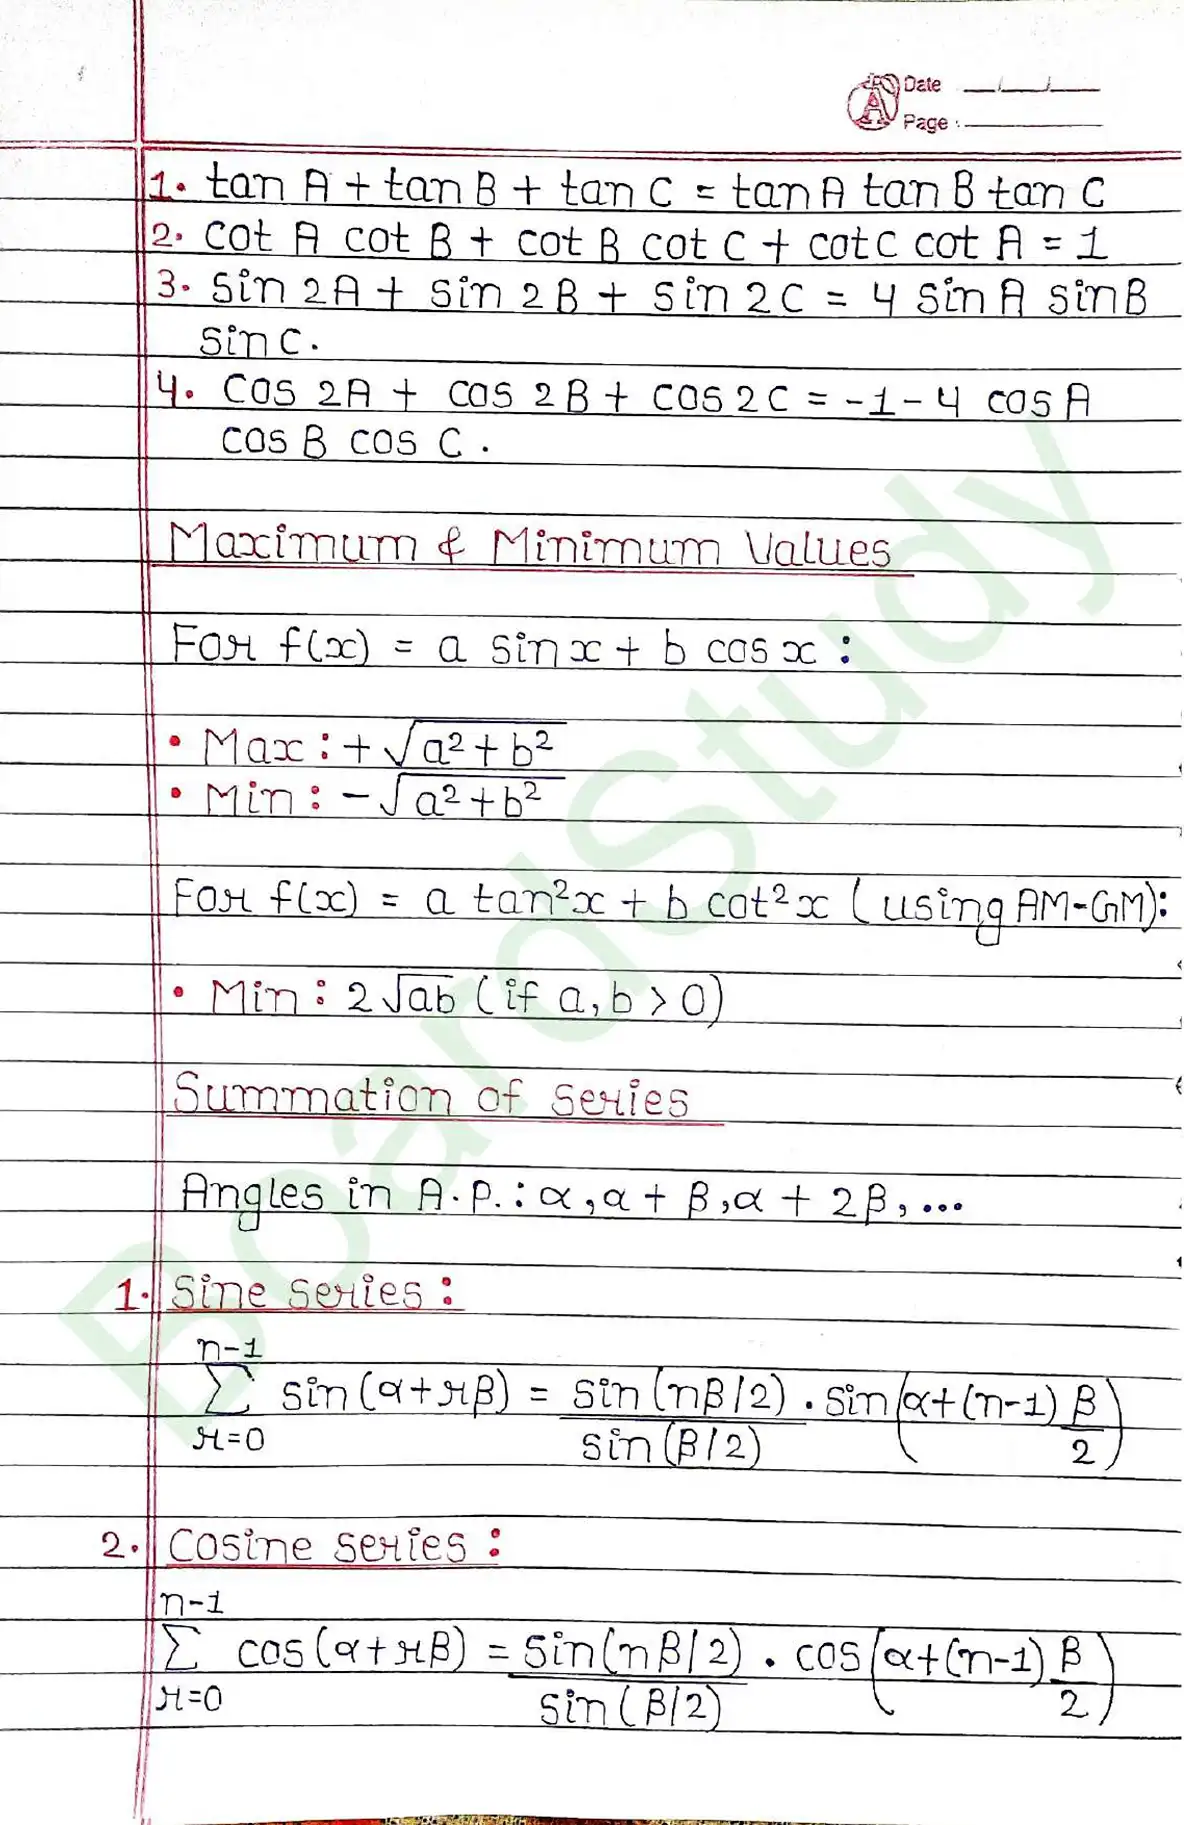 Date __/__/__
Page : ______
1. tan A + tan B + tan C = tan A tan B tan C
2. cot A cot B + cot B cot C + cot C cot A = 1
3. sin 2A + sin 2B + sin 2C = 4 sin A sin B
sin C.
4. cos 2A + cos 2B + cos 2C = -1 - 4 cos A
cos B cos C.
Maximum & Minimum Values
For f(x) = a sin x + b cos x :
• Max : +√(a²+b²)
• Min : -√(a²+b²)
For f(x) = a tan²x + b cot²x (using AM-GM):
• Min : 2√ab (if a, b > 0)
Summation of series
Angles in A.P. : α, α + β, α + 2β, ...
1. Sine series :
n-1
∑ sin(α+rβ) = sin(nβ/2) . sin(α+(n-1) β
r=0 sin(β/2) 2)
2. Cosine series :
n-1
∑ cos(α+rβ) = sin(nβ/2) . cos(α+(n-1) β
r=0 sin(β/2) 2)
BoardStudy